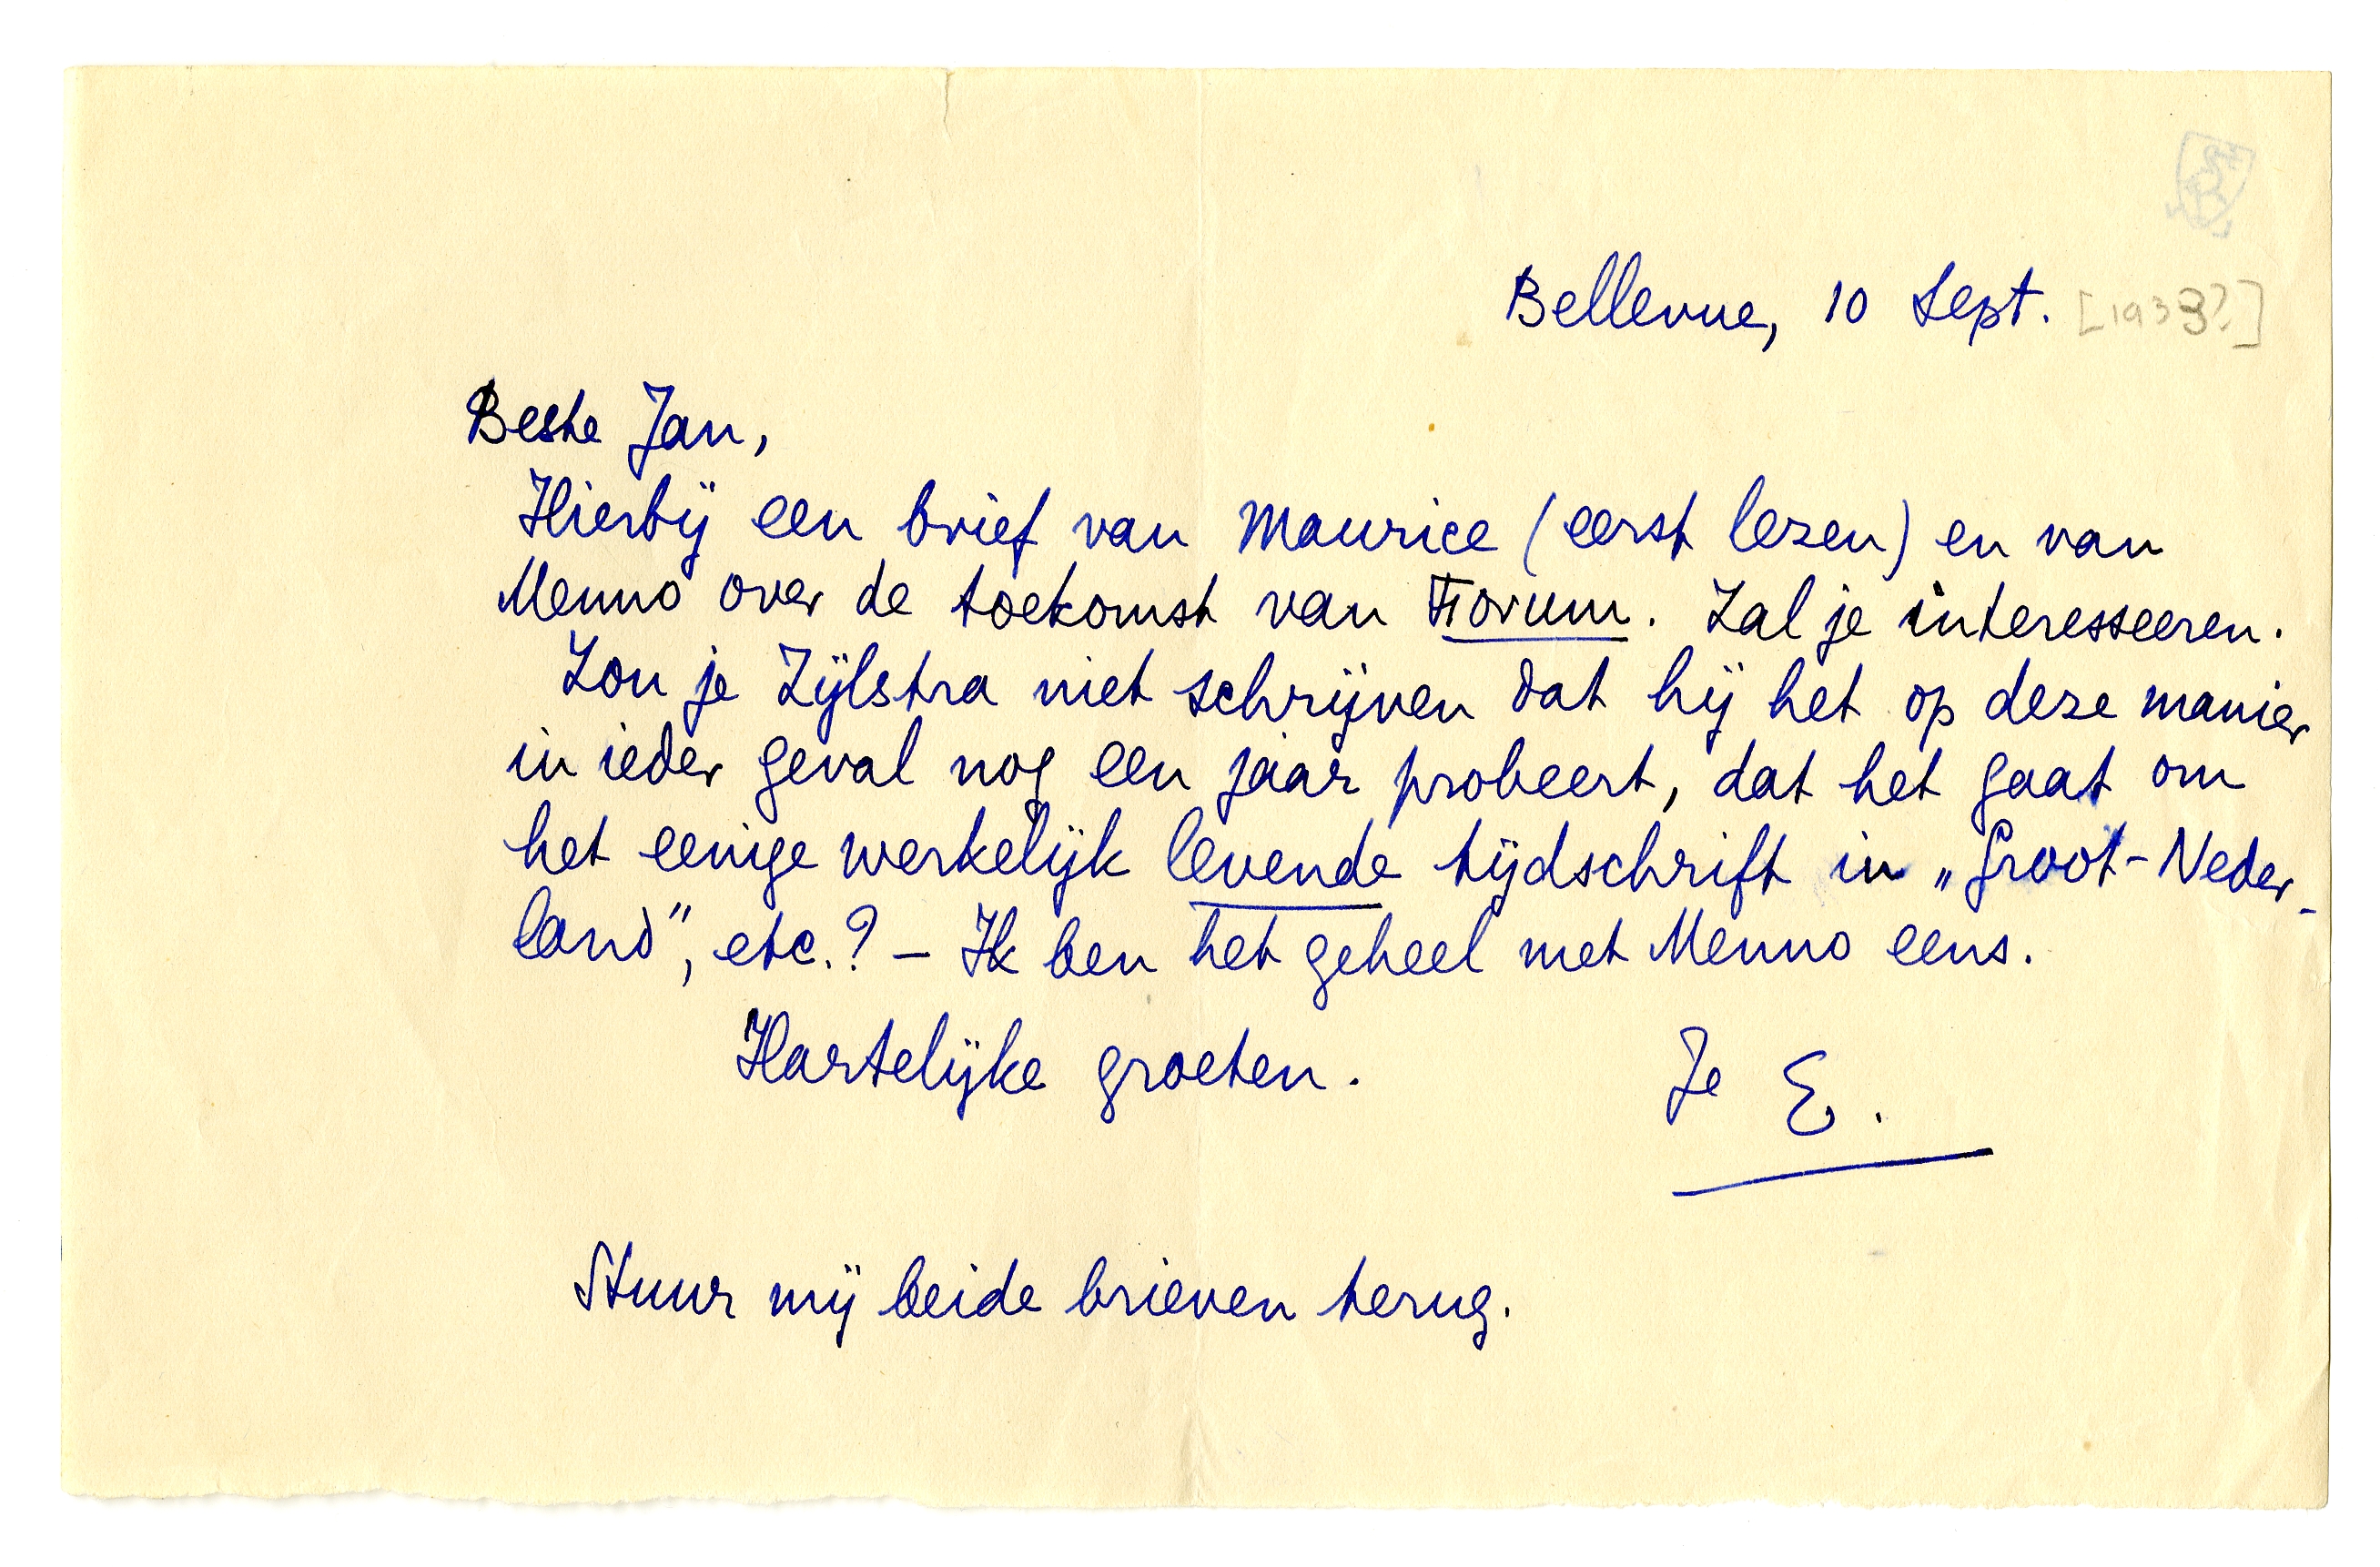 Bellevue, 10 Sept. [1933?]
Beste Jan,
Hierbij een brief van Maurice (eerst lezen) en van
Menno over de toekomst van Forum. Zal je interesseeren.
Zou je Zijlstra niet schrijven dat hij het op deze manier
in ieder geval nog een jaar probeert, dat het gaat om
het eenige werkelijk levende tijdschrift in „Groot-Neder-
land”, etc.? – Ik ben het geheel met Menno eens.
Hartelijke groeten. Je E.
Stuur mij beide brieven terug.